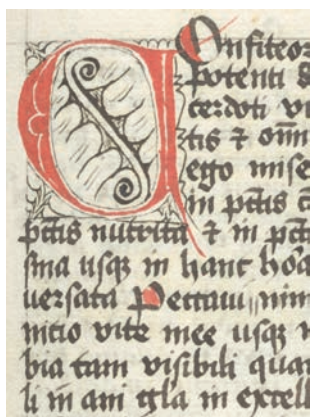 Onfiteor
potenti
cerdoti
tis ⁊ om̅i
ego mise
in pctĩs
pctĩs nutrita ⁊ in pct
sma usqꝫ in hanc ho
uersata Peccaui nim
nicio vite mee usqꝫ
bia tam visibili quam
li in ani gla in excell